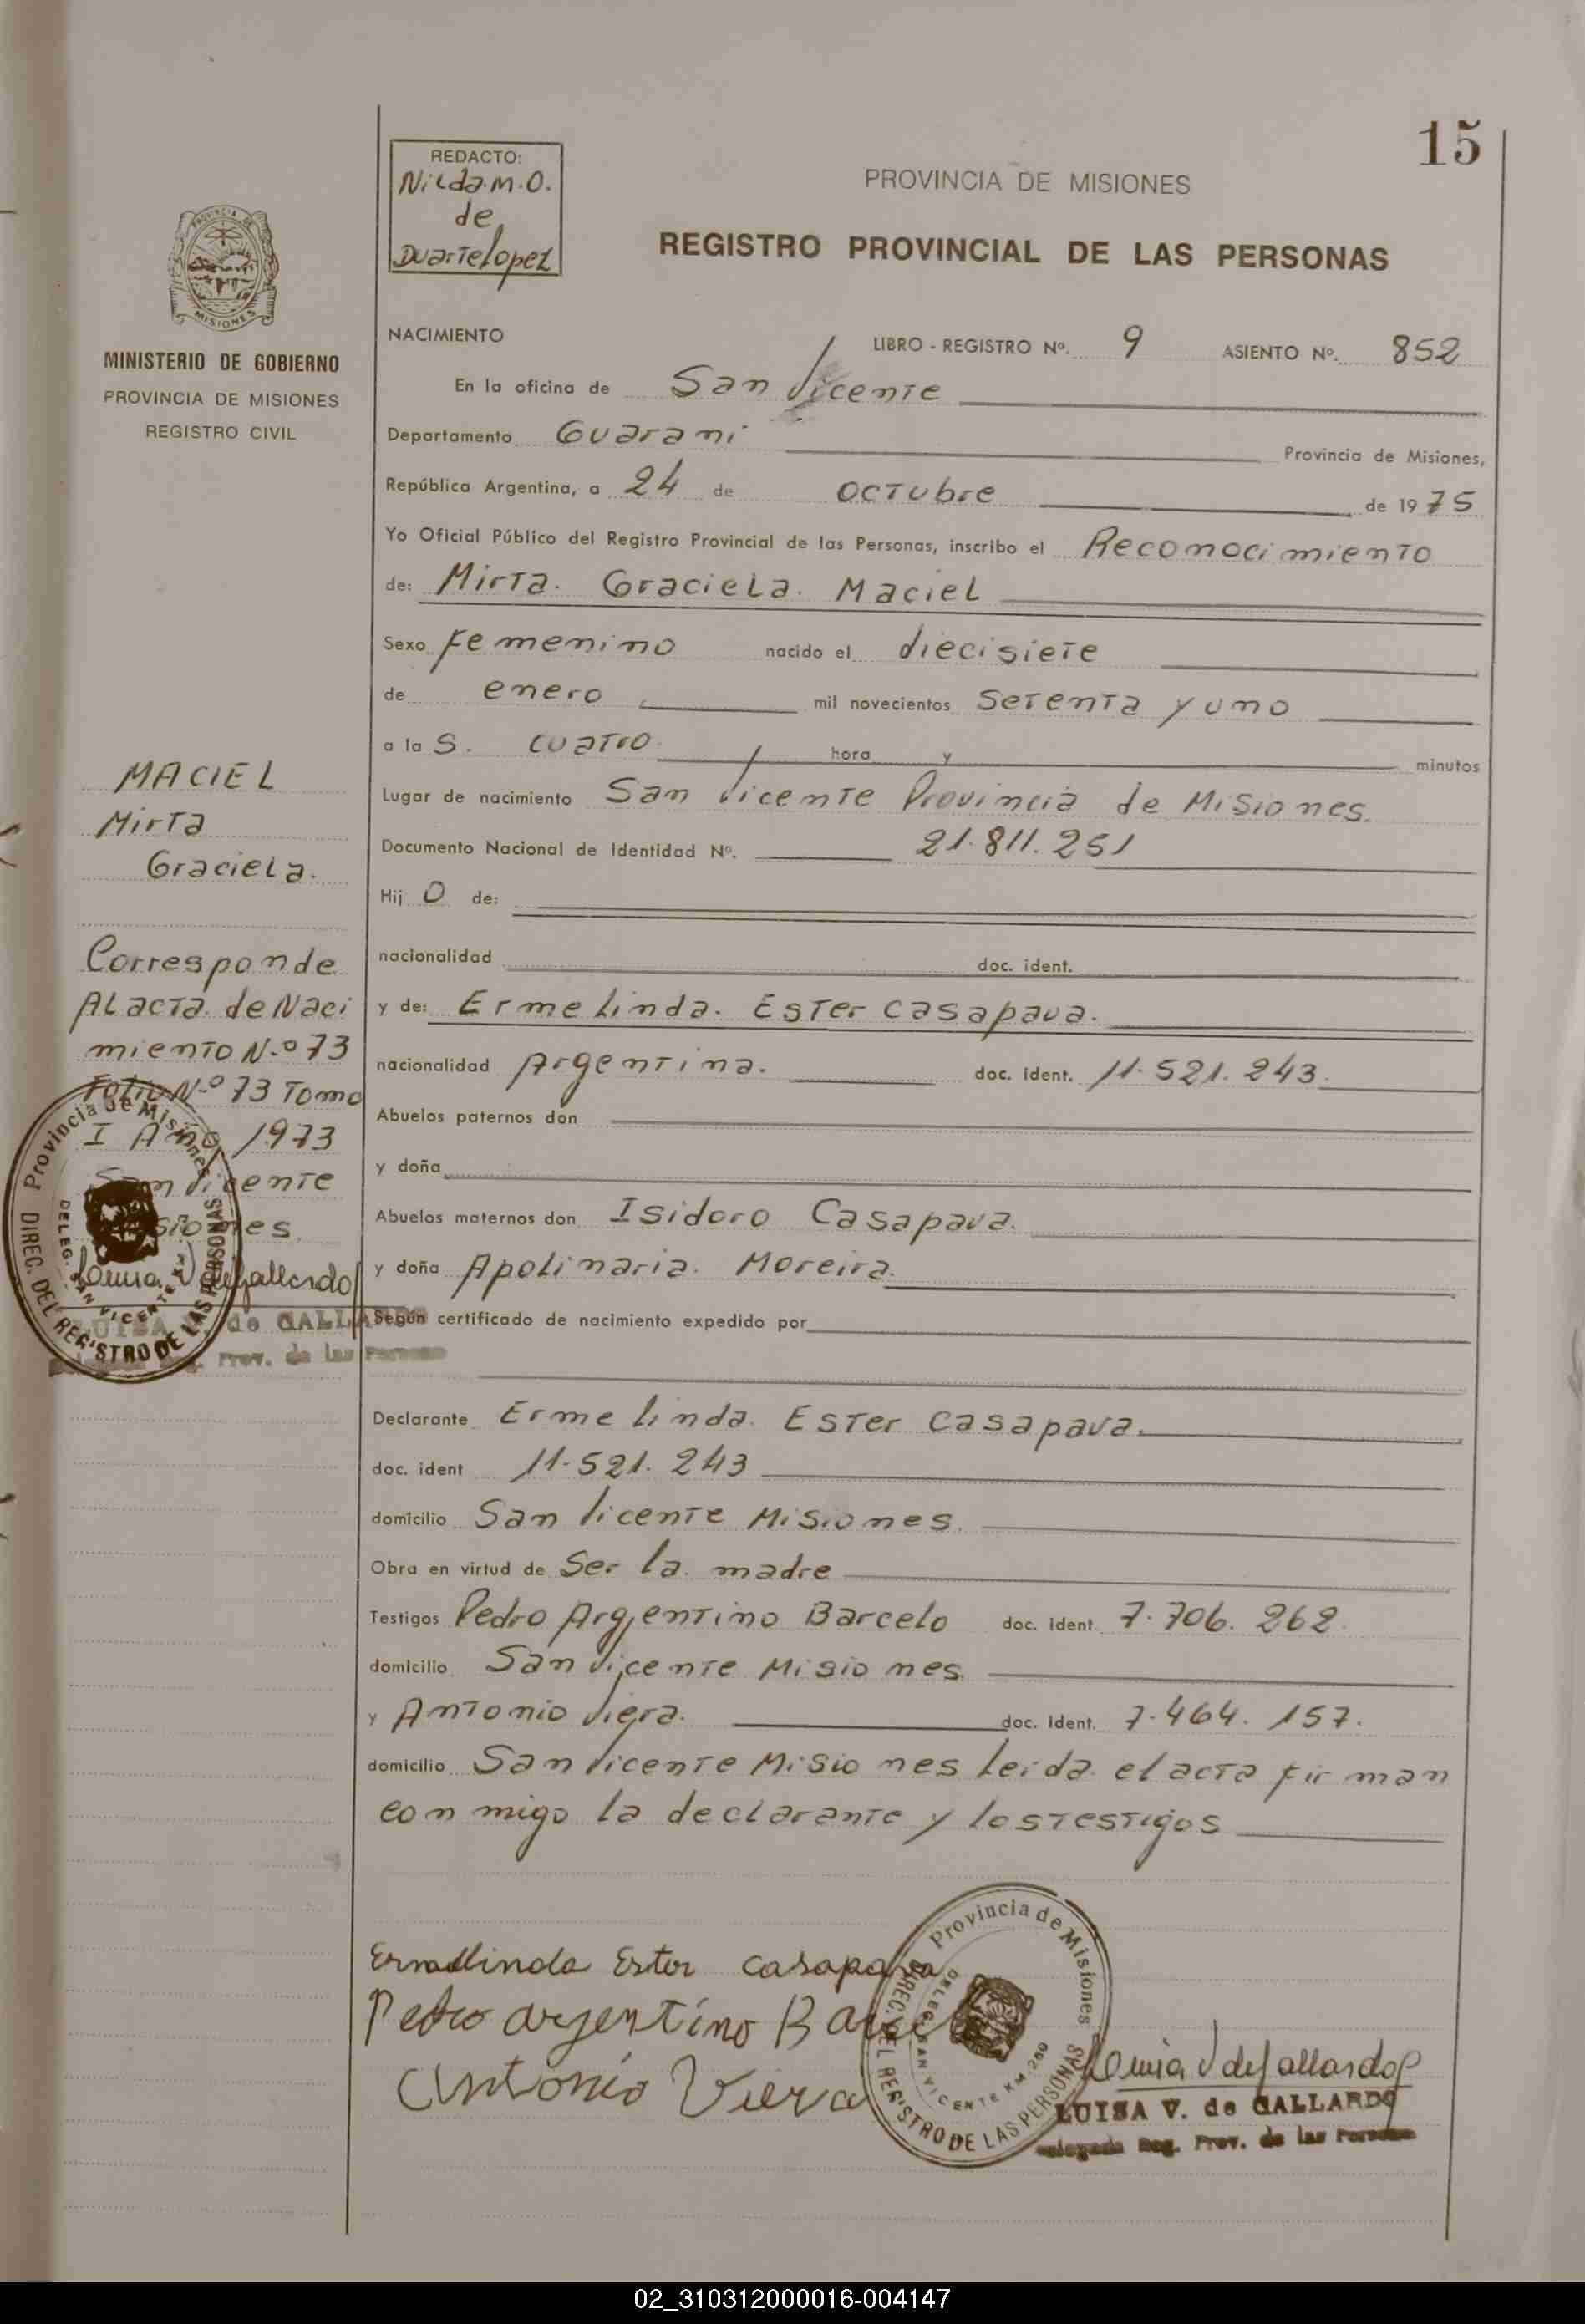 15
REDACTO:
Nilda.M.O.
de
Duartelopez
PROVINCIA DE MISIONES
REGISTRO PROVINCIAL DE LAS PERSONAS
PROVINCIA DE
MISIONES
MINISTERIO DE GOBIERNO
PROVINCIA DE MISIONES
REGISTRO CIVIL
NACIMIENTO
LIBRO - REGISTRO Nº. 9 ASIENTO Nº. 852
En la oficina de San Vicente
Departamento Guarani Provincia de Misiones,
República Argentina, a 24 de octubre de 1975
Yo Oficial Público del Registro Provincial de las Personas, inscribo el Reconocimiento
de: Mirta. Graciela. Maciel
Sexo Femenino nacido el diecisiete
de enero mil novecientos Setenta y uno
a la S. cuatro hora y minutos
Lugar de nacimiento San Vicente Provincia de Misiones.
Documento Nacional de Identidad Nº. 21.811.251
Hij O de:
nacionalidad doc. ident.
y de: Ermelinda. Ester Casapava.
nacionalidad Argentina. doc. ident. 11.521.243.
Abuelos paternos don
y doña
Abuelos maternos don Isidoro Casapava.
y doña Apolinaria. Moreira.
Según certificado de nacimiento expedido por
Declarante Ermelinda. Ester Casapava.
doc. ident 11.521.243
domicilio San Vicente Misiones.
Obra en virtud de Ser la. madre
Testigos Pedro Argentino Barcelo doc. ident. 7.706.262.
domicilio San Vicente Misiones
y Antonio Viera. doc. Ident. 7.464.157.
domicilio San Vicente Misiones leida el acta firman
conmigo la declarante y los testigos
MACIEL
Mirta
Graciela.
Corresponde
Al acta. de Naci
miento N.º 73
Folio N.º 73 Tomo
I Año 1973
San Vicente
Misiones.
Luisa V de Gallardo
LUISA V. de GALLARDO
Prov. de las Personas
Provincia de Misiones
DIREC. DEL REGISTRO DE LAS PERSONAS
DELEG. SAN VICENTE KM
Ermelinda Ester Casapava
Pedro argentino Barcelo
Antonio Viera
Provincia de Misiones
DIREC. DEL REGISTRO DE LAS PERSONAS
DELEG. SAN VICENTE KM.260
Luisa V de Gallardo
LUISA V. de GALLARDO
Delegada Reg. Prov. de las Personas
02_310312000016-004147